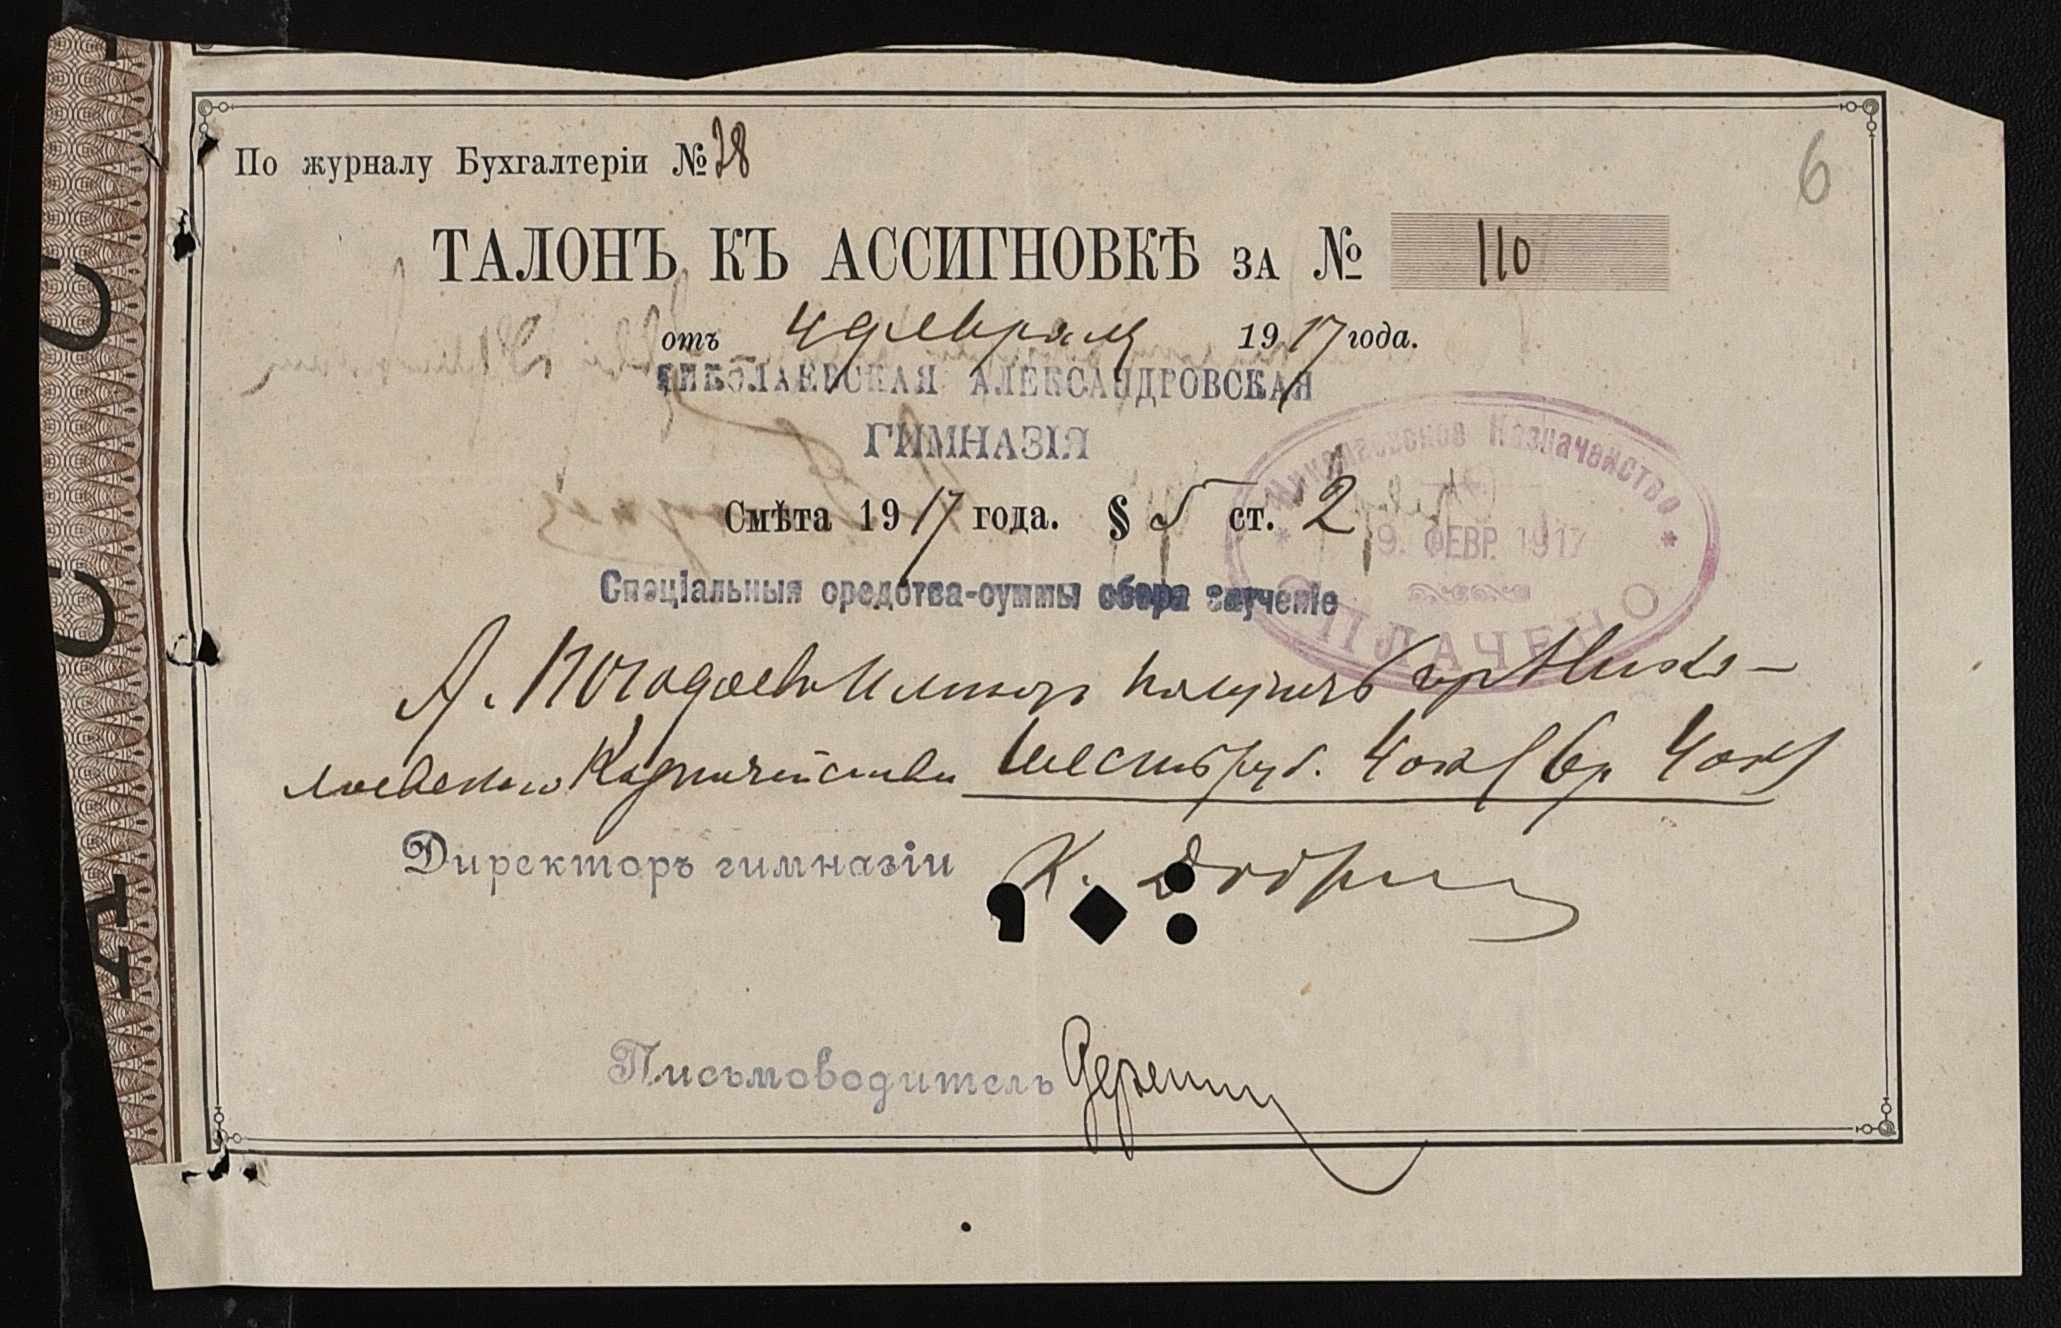 6
По журналу Бухгалтеріи № 28
ТАЛОНЪ КЪ АССИГНОВКѢ ЗА № 110
отъ 4 февраля 1917 года.
НИКОЛАЕВСКАЯ АЛЕКСАНДРОВСКАЯ
ГИМНАЗІЯ
Николаевское Казначейство
Смѣта 1917 года. § 5 ст. 2
9. ФЕВР. 1917
Спеціальныя средства-суммы сбора заученіе
ОПЛАЧЕНО
А. Погодаевъ получить Нико-
лаевскаго Казначейства Шесть руб. 4 коп (6 р 4 коп)
Директоръ гимназіи К.
Письмоводитель